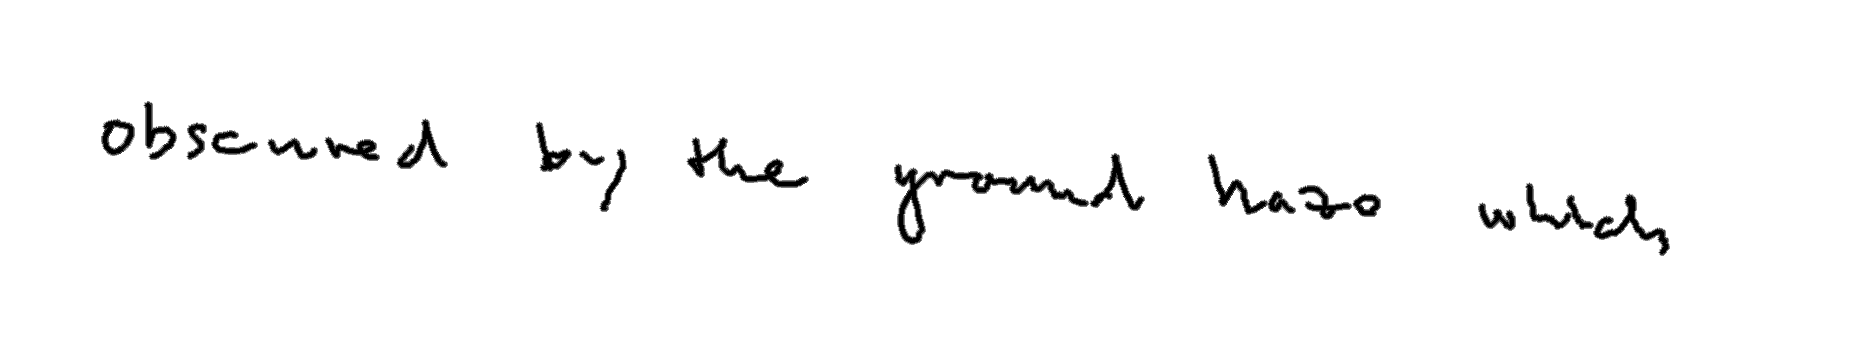 obscured by the ground haze which